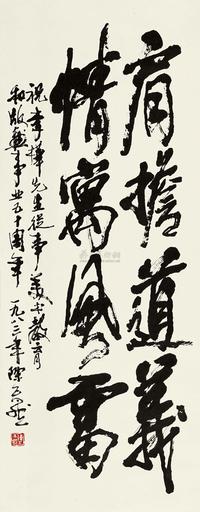 肩擔道義
情寓風雷
祝李樺先生從事美术教育
和版畫事业五十周年
一九八三年陳